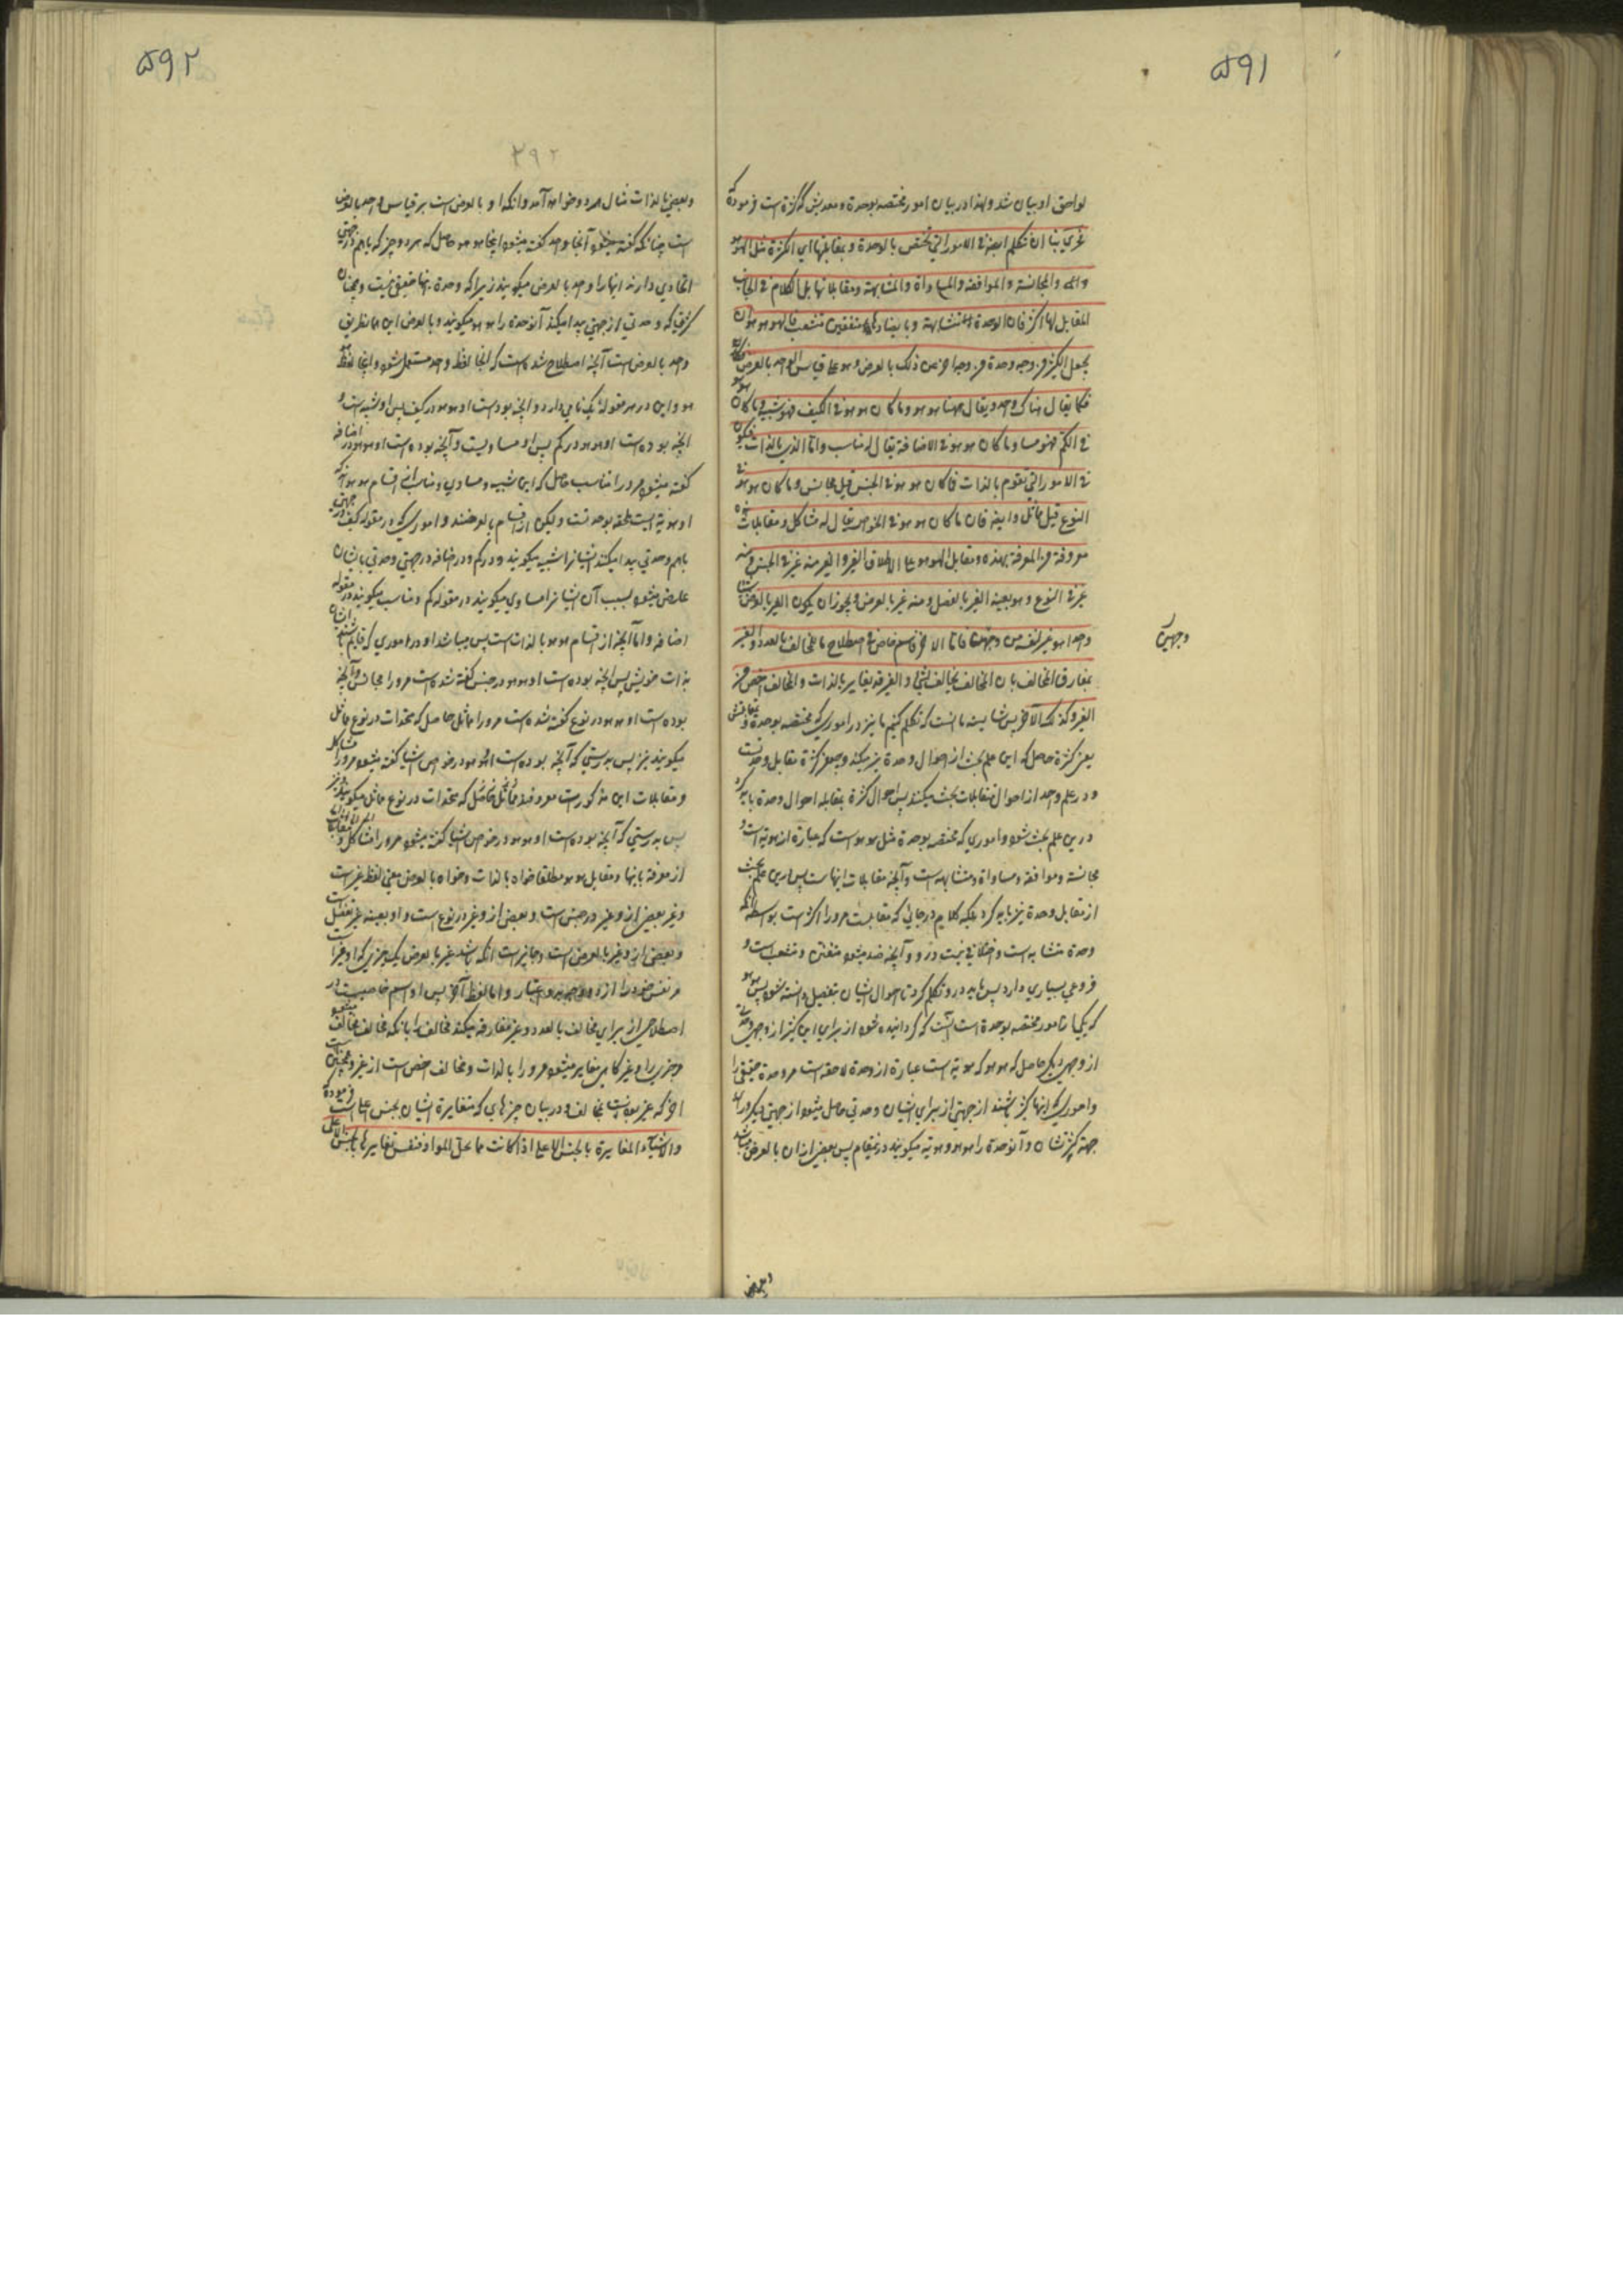 ۵۹۱
لواحق او بیان شد ولهذا در بیان امور مختصه بوحدة ومعدیش که کثرة است فرموده که
غری بنا ان نتکلم ایضا فی الامور التی تختص بالوحدة و بمقابلتها ای الکثرة مثل الهو هو
والمجانسة والموافقة والمساواة والمشابهة ومقابلاتها بل الکلام فی الجانب
المقابل لها اکثر فان الوحدة متشابهة وما یضادها متفنن متشعب فالهو هو ان
یجعل الکثیر من وجه وحدة من وجه اخر فمن ذلک بالعرض وهو علی قیاس الواحد بالعرض
فکما یقال هناک واحد یقال ههنا هو هو وما کان هو هو فی الکیف فهو شبیه وما کان هو هو
فی الکم فهو مساو وما کان هو هو فی الاضافة یقال له مناسب واما الذی بالذات فیکون
فی الامور التی تقوم بالذات فما کان هو هو فی الجنس قیل مجانس وما کان هو هو فی
النوع قیل مماثل وایضا فان ما کان هو هو فی الخواص یقال له مشاکل ومقابلات
معروفة من المعرفة بهذه ومقابل الهو هو علی الاطلاق الغیر والغیر منه غیر فی الجنس ومنه
غیر فی النوع وهو بعینه الغیر بالفصل ومنه غیر بالعرض ویجوز ان یکون الغیر بالعرض
واحدا هو غیر لنفسه من وجهین فاما الاخر فاسم خاص فی اصطلاح ما للمخالف بالعدد والغیر
وجهین
یفارق المخالف بان المخالف یخالف بشئ والغیر قد یغایر بالذات والمخالف اخص من
الغیر وکذلک الآخر پس شایسته ما انست که تکلم کنیم ما نیز در اموری که مختصه بوحدة
یعنی کثرة حاصل که این علم بحث از احوال وحدة نیز میکند و چون کثرة مقابل وحدتست
ودر علم واحد از احوال متقابلات بحث میکنند پس احوال کثرة بمقابله احوال وحدة باید که
درین علم بحث شود واموری که مختصه بوحدة مثل هو هو است که عبارة از هویة است و
مجانسة وموافقة ومساواة ومشابهه است وآنچه مقابلات اینهاست پس درین علم بحث
از مقابل وحدة نیز باید کرد بلکه کلام در جانبی که مقابلست مر او را اکثر است بواسطه آنکه
وحدة متشابه است واختلافی نیست درو وآنچه ضد میشود متفنن ومتشعب است و
فروعی بسیاری دارد پس باید درو تکلم کرد تا احوال ایشان بتفصیل دانسته شود پس هو هو
که یکی از امور مختصه بوحدة است آنست که گردانیده شود از برای این کثیر از وجهی وحدت
از وجهی دیگر حاصل که هو هو که هویة است عبارة از وحدة لاحقه است مر وحدة حقیقی را
واموری که اینها کثیر باشند از جهتی از برای ایشان وحدتی حاصل میشود از جهتی دیگر ورای
جهة کثرتشان وآن وحدة را هو هو وهویة میگویند درینمقام پس بعضی از آن بالعرض باشد
وبعضی
۵۹۲
۲۹۲
وبعضی بالذات مثال هر دو خواهد آمد وآنکه او بالعرض است بر قیاس واحد بالعرض
است چنانکه گفته میشود آنجا واحد گفته میشود اینجا هو هو حاصل که هر دو چیز که باهم در جهتی
اتحادی دارند اینها را واحد بالعرض میگویند زیرا که وحدة اینها حقیقی نیست وهمچنان
کثرتی که وحدتی از جهتی پیدا میکند آن وحدة را هو هو میگویند وبالعرض این هم بطریق
واحد بالعرض است آنچه اصطلاح شده است که آنجا لفظ واحد مستعمل شود واینجا لفظ
هو هو واین در هر مقوله یک نامی دارد وآنچه بوده است او هو هو در کیف پس او شبیه است و
آنچه بوده است او هو هو در کم پس او مساویست وآنچه بوده است او هو هو در اضافه
گفته میشود مر او را مناسب حاصل که این شبیه ومساوی ومناسب از اقسام هو هو است که
او هویة لیست ملحقه بوحدتست ولیکن از اقسام بالعرضند واموری که در مقوله کیف در جهتی
باهم وحدتی پیدا میکنند ایشان را شبیه میگویند ودر کم ودر اضافه در جهتی وحدتی بایشان
عارض میشود بسبب آن ایشان را مساوی میگویند در مقوله کم ومناسب میگویند در مقوله
اضافه واما آنچه از اقسام هو هو بالذات است پس میباشد او در اموری که قایم باشند ایشان
بذات خویش پس آنچه بوده است او هو هو در جنس گفته شده است مر او را مجانس وآنچه
بوده است او هو هو در نوع گفته شده است مر او را مماثل حاصل که متحدات در نوع مماثل
میگویند نیز پس بدرستی که آنچه بوده است او هو هو در خواص اشیا گفته میشود مر او را مشاکل
ومقابلات این مذکورات معروفند حاصل که متحدات در نوع مماثل میگویند نیز
پس بدرستی که آنچه بوده است او هو هو در خواص اشیا گفته میشود مر او را مشاکل و
از معرفة باینها ومقابل هو هو مطلقا خواه بالذات وخواه بالعرض معنی لفظ غیر است
وغیر بعضی از او غیر در جنس است وبعضی از او غیر در نوع است واو بعینه غیر بفصل است
وبعضی از او غیر بالعرض است وجایز است آنکه باشد غیر بالعرض یک چیزی که او غیر است
مر نفس خود را از دو وجه ودو اعتبار واما لفظ آخر پس او اسم خاصیست در
اصطلاحی از برای مخالف بالعدد وغیر مفارقه میکند مخالف را بانکه مخالف مخالف میشود
مر چیزی را وغیر گاهی مغایر میشود مر او را بالذات ومخالف اخص است از غیر وهمچنین
آخر که غیر بعددست مخالف ودر بیان چیزهای که مغایرة ایشان بجنس اعلی است فرموده
والاشیاء المغایرة بالجنس الاعلی اذا کانت مما تحل المواد فنفس تغایرها بالجنس الاعلی